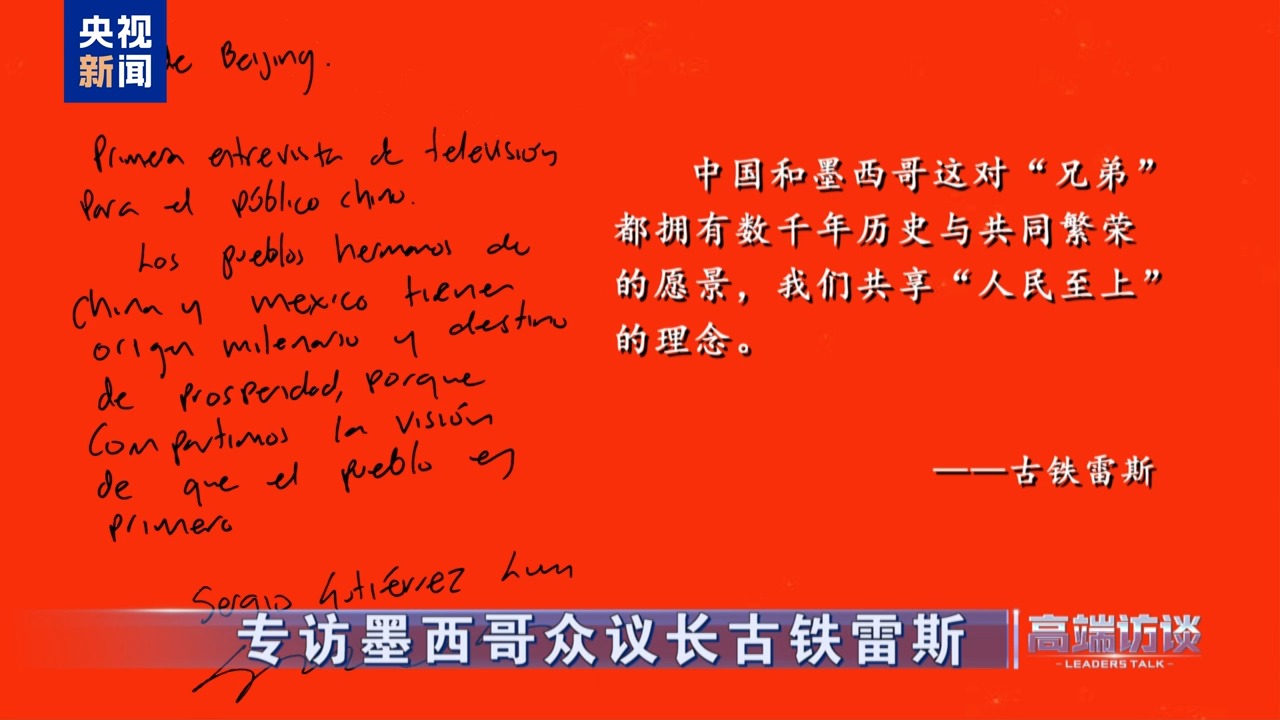 央视
新闻
de Beijing.
Primera entrevista de televisión
para el público chino.
Los pueblos hermanos de
China y México tienen
origen milenario y destino
de prosperidad, porque
compartimos la visión
de que el pueblo es
primero
Sergio Gutiérrez Luna
中国和墨西哥这对“兄弟”
都拥有数千年历史与共同繁荣
的愿景，我们共享“人民至上”
的理念。
——古铁雷斯
专访墨西哥众议长古铁雷斯
高端访谈
- LEADERS TALK -